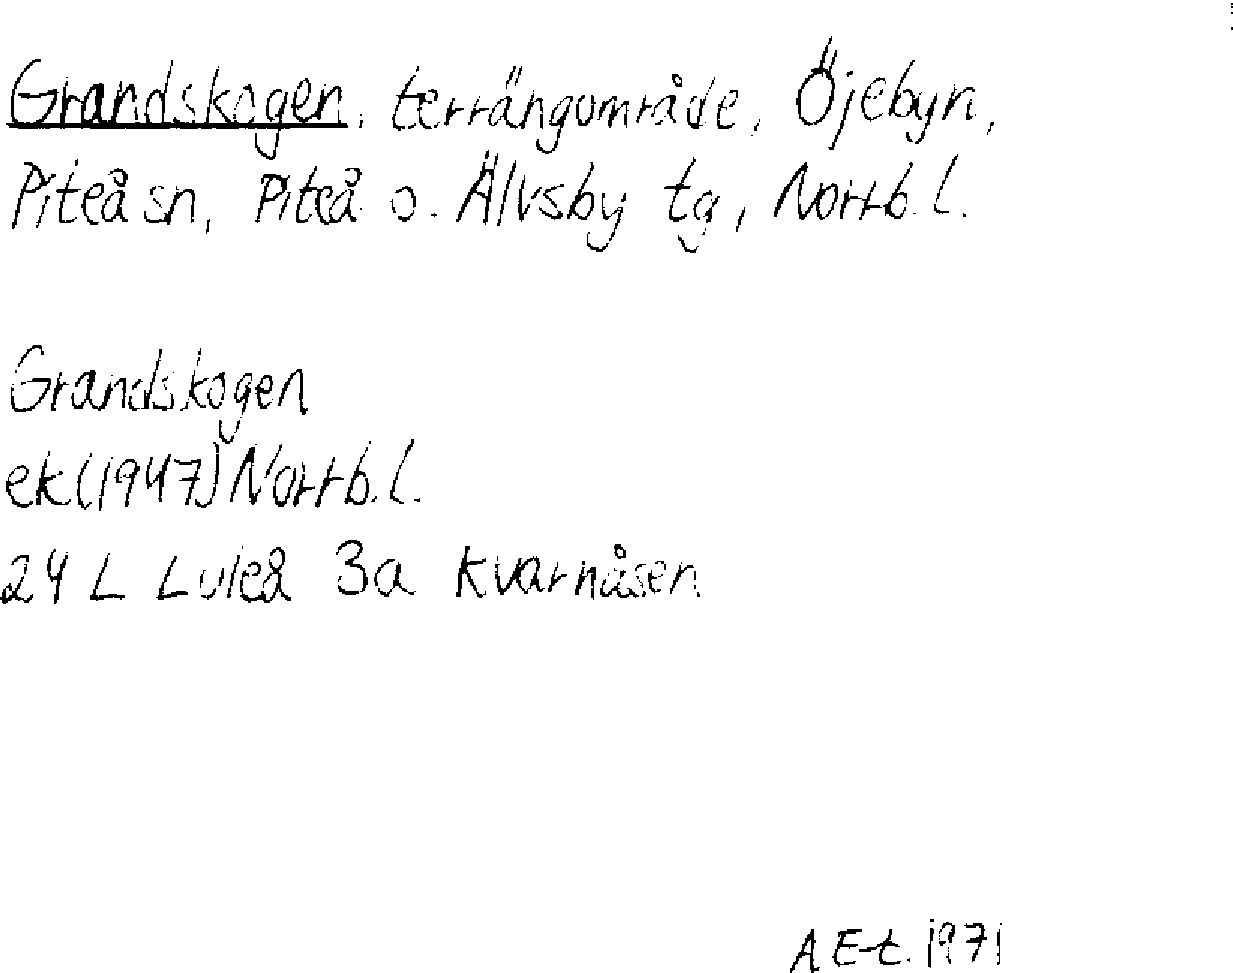 Grandskogen, terrängområde, Öjebyn,
Piteå sn, Piteå o. Älvsby tg, Norrb. l.
Grandskogen
ek (1947) Norrb. l.
24 L Luleå 3a Kvarnåsen
A E-t. 1971